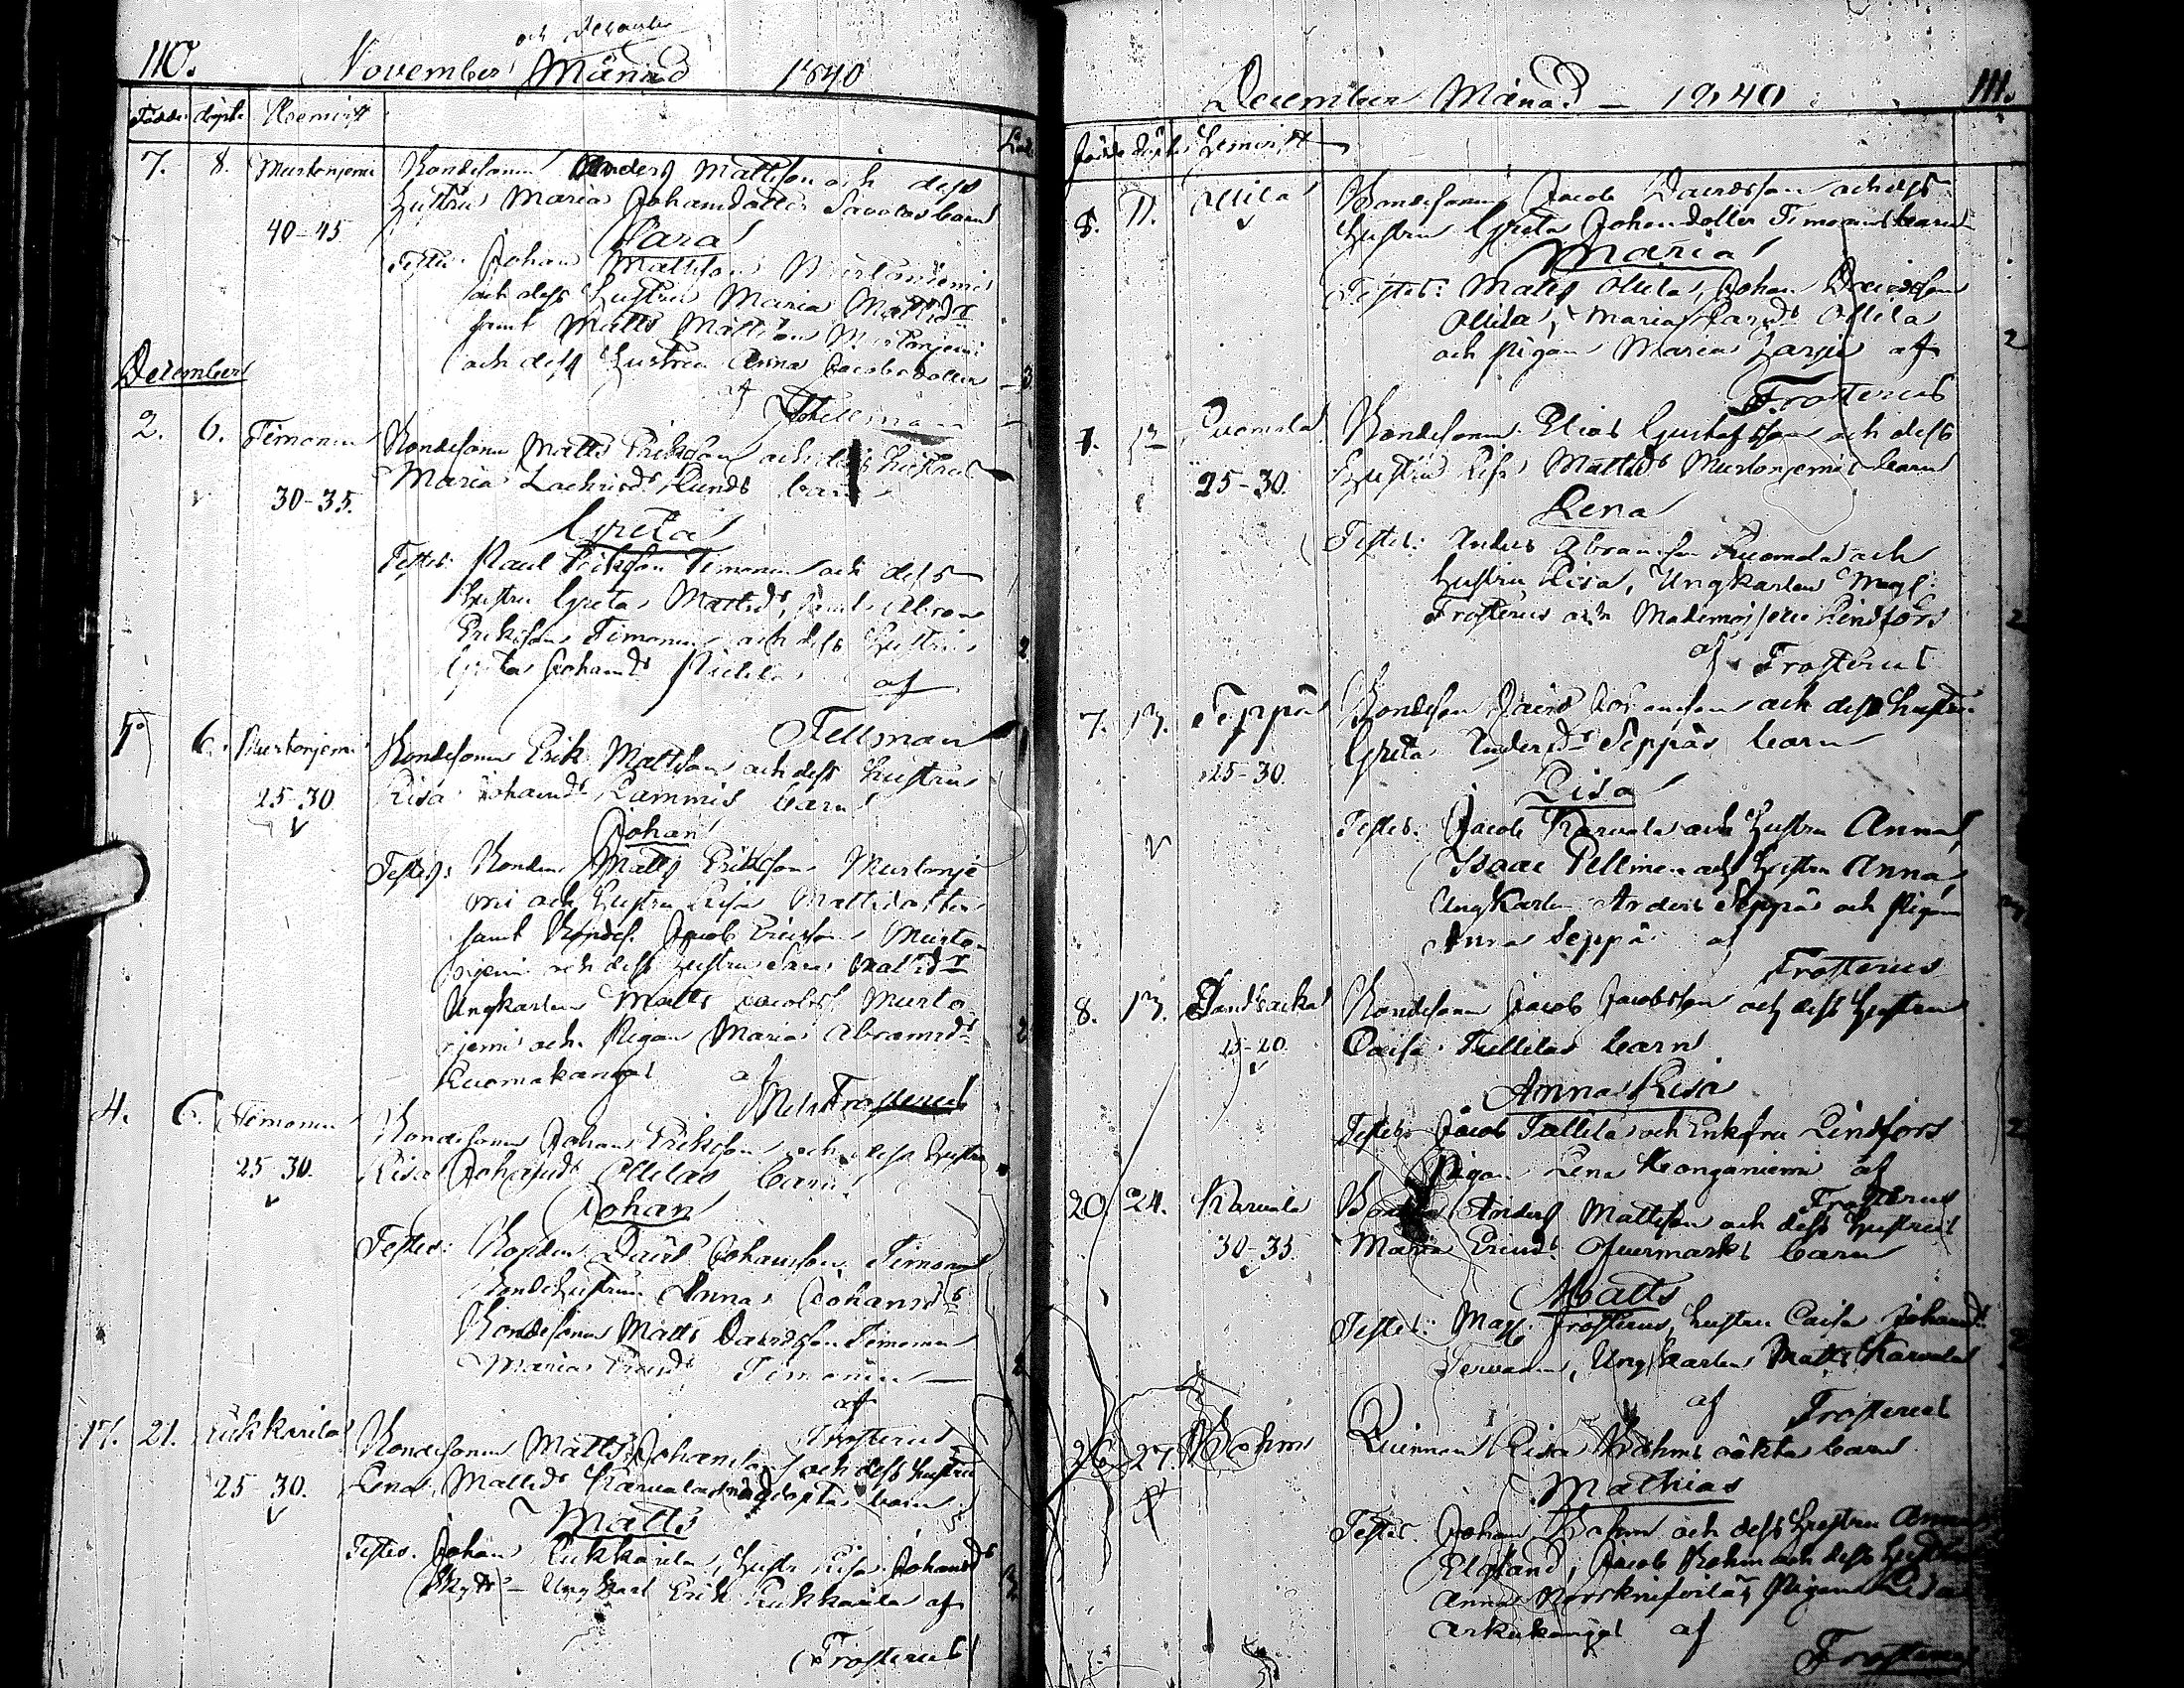 och December
110. November Månad 1840
Födde döpte Hemvist
7. 8. Murtonjemi Bondesonen Anders Mattsson och dess
Hustru Maria Johansdotter Savolas barn
40-45 Sara
Testes: Johan Mattsson Murtoniemi
och dess Hustru Maria Mattsdr
samt Matts Mattsson Murtonjemi
och dess Hustru Anna Jacobsdotter 3
December
af Fellman
2. 6. Timonen Bondesonen Matts Eriksson och dess Hustru
Maria Zachrisdr Lunds barn
30-35.
Greta
Testes: Paul Eriksson Timonen och dess
Hustru Greta Mattsdr, samt Abram
Eriksson Timonen och dess Hustru 2
Greta Johansdr
af
Fellman
5 6. Murtonjemi Bondesonen Erik Mattsson och dess Hustru
25-30 Lisa Johansdr Lammis barn
Johan
Testes: Bonden Matts Eriksson Murtonje
mi och Hustru Lisa Mattsdotter
samt Bondes. Jacob Ericsson Murton
jemi och dess Hustru Sara Mattsdr
Ungkarlen Matts Jacobss. Murto
njemi och Pigan Maria Abramsdr 2
Luomakangas af
Nils Frosterus
4. 6. Timonen Bondesonen Johan Eriksson och dess Hustru
25-30. Lisa Johansdr Ollilas barn
Johan
Testes: Bonden David Johansson Timonen
Bondehustrun Anna Johansdr
Bondesonen Matts Davidsson Timonen
Maria Ericsdr Timonen
af
Frosterus
17. 21. Rukkarila Bondesonen Matts Johansson och dess hustru
25-30. Lena Mattsdr Karvalas barn
Matts
Testes. Johan Rukkarila, Hustr Lisa Johansdr
Ungkarl Erik Rukkarila af
Frosterus
December Månad - 1840 111.
Födde döpte Hemvist
8. 11. Ollila Bondesonen Jacob Davidsson och dess
Hustru Greta Johansdotter Timonens barn
Maria
Testes: Matts Ollila, Johan Davidsson
Ollila, Maria Ollila
och pigan Maria af 2
Frosterus
7. 12 Luomala Bondesonen Elias Gustafsson och dess
25-30. Hustru Lisa Mattsdr Murtonjemis barn
Lena
Testes: Anders Abramsson Luomala och
Hustru Lisa, Ungkarlen Mag.
Frosterus och Mademoiselle Lindfors 2
af Frosterus
7. 13. Seppä Bondeson David Johansson och dess hustru
Greta Andersdr Seppäs barn
25-30. Lisa
Testes: Jacob Karvala och Hustru Anna,
Isaac Pellinen och Hustru Anna
Ungkarlen Anders Seppä och Pigan
Anna Seppä af
Frosterus
8. 13. Sandbacka Bondesonen Jacob Jacobsson och dess Hustru
15-20. Caisa Tullilas barn
Anna Lisa
Testes: Jacob Tullila och Enkfru Lindfors 2
Pigan Lena Konganiemi af
Frosterus
20 24. Karvala Anders Mattsson och dess Hustrus
30-35. Maria Ericsdr Ofvermarks barn
Matts
Testes: Mag. Frosterus, hustru Caisa Johansdr 2
Tervonen, Ungkarlen Matts Karvala
af Frosterus
26 27. Bohm Qvinnan Lisa Bohms oäkta barn
Mathias
Testes: Johan Bohm och dess Hustru Anna
Elgland, Jacob Bohm och dess Hustru
Anna, Pigan Lisa
Arkukangas af
Frosterus